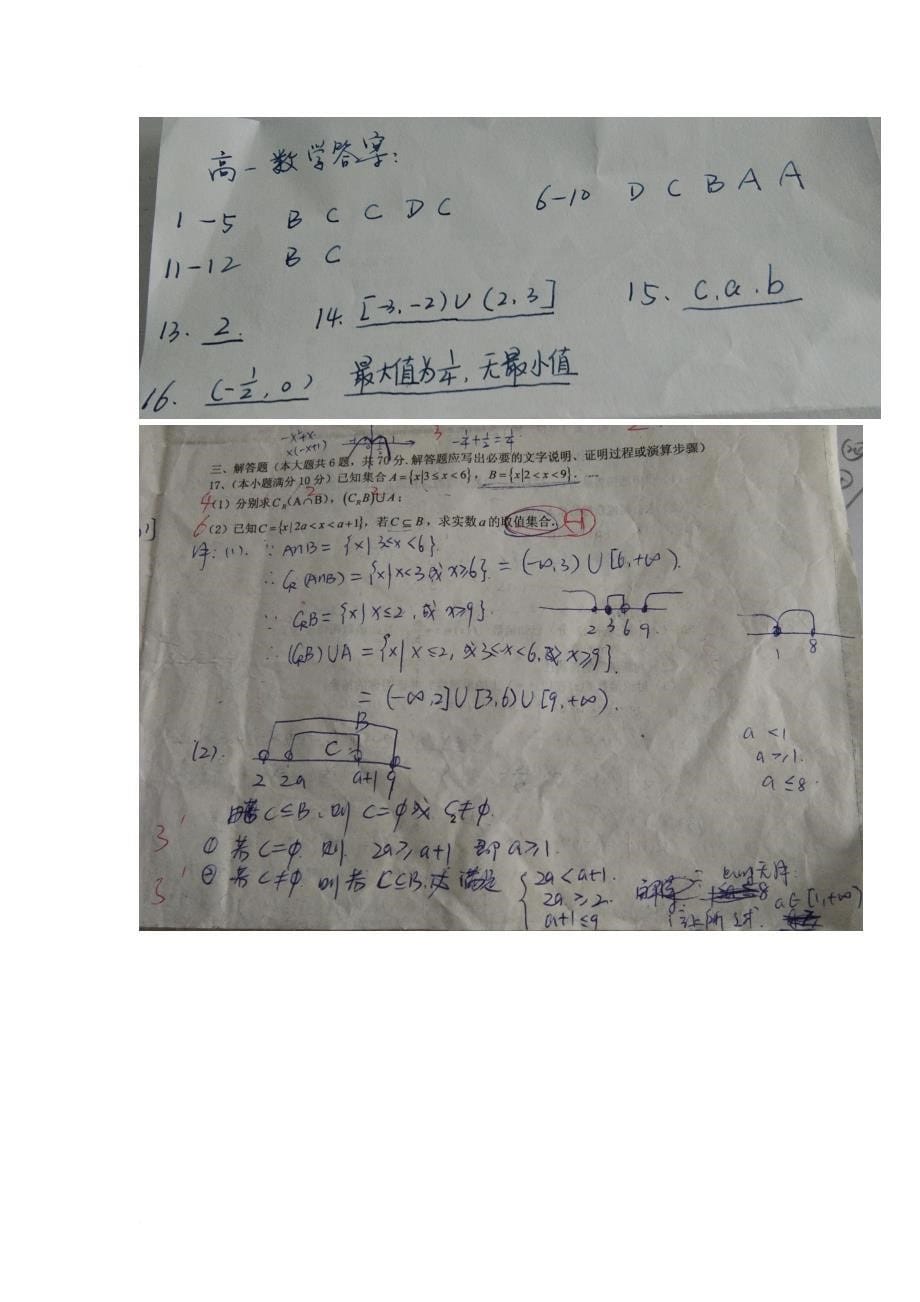 高一数学答案:
1-5 B C C D C 6-10 D C B A A
11-12 B C
13. 2. 14. [-3,-2)∪(2,3] 15. c.a.b
16. (-1/2,0) 最大值为1/4,无最小值
-x²+x
x(-x+1)
3 -1/4+1/2=1/4
三、解答题(本大题共6题,共70分.解答题应写出必要的文字说明、证明过程或演算步骤)
17、(本小题满分10分)已知集合A={x|3≤x<6},B={x|2<x<9}.
4 (1)分别求C_R(A∩B),(C_R B)∪A;
6 (2)已知C={x|2a<x<a+1},若C⊆B,求实数a的取值集合. -1
解:(1). ∵ A∩B={x|3≤x<6}.
∴ C_R(A∩B)={x|x<3或x≥6}=(-∞,3)∪[6,+∞).
∵ C_R B={x|x≤2,或x≥9}.
2 3 6 9
1 8
∴ (C_R B)∪A={x|x≤2,或3≤x<6,或x≥9}.
=(-∞,2]∪[3,6)∪[9,+∞).
(2).
B
C
2 2a a+1 9
a<1
a≥1.
a≤8.
C⊆B,则C=φ或C≠φ.
3' ① 若C=φ 则 2a≥a+1 即a≥1.
3' ② 若C≠φ 则若C⊆B,应满足 {2a<a+1.
2a≥2.
a+1≤9
无解
综上所述. a∈[1,+∞)